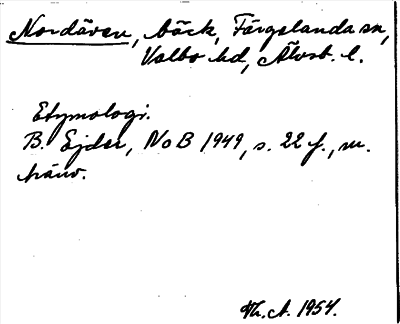 Nordåven, bäck, Färgelanda sn,
Valbo hd, Älvsb. l.
Etymologi.
B. Ejder, NoB 1949, s. 22 f., m.
hänv.
Th. A. 1954.